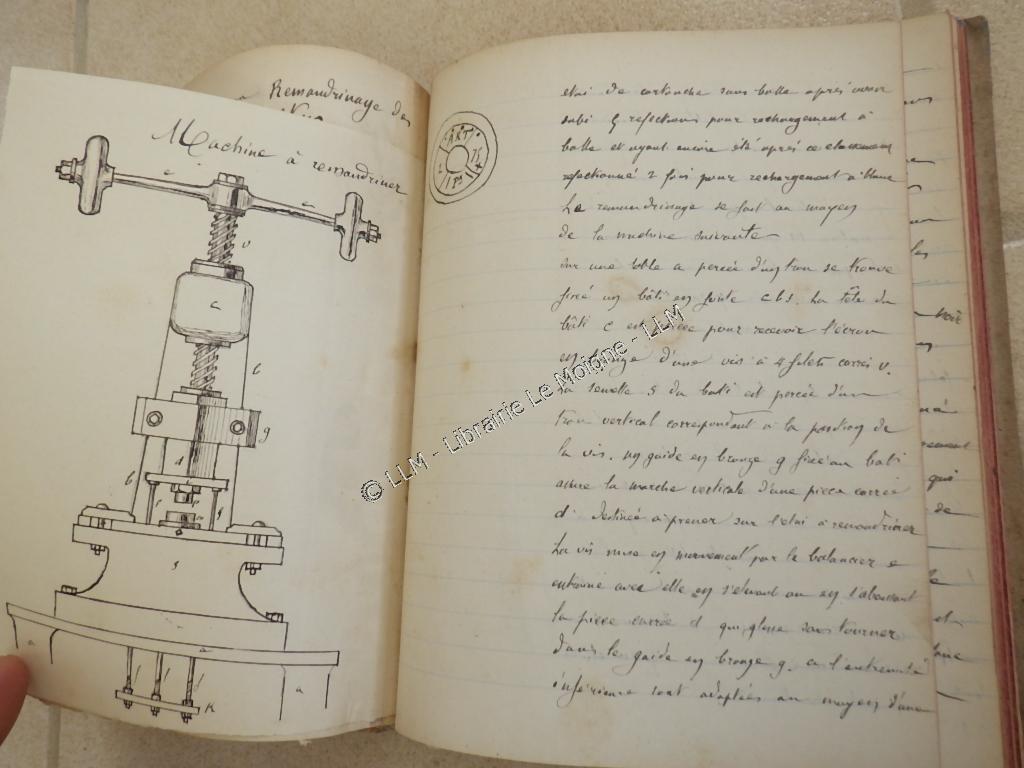 Remandrinage des
Machine à remandriner
e
e
v
c
b
g
d
b
f
f
s
a
a
a
f
f
f
K
ART.
étui de cartouche sans balle après avoir
subi 5 réfections pour rechargement à
balle et ayant encore été après ce
refectionné 2 fois pour rechargement à blanc
Le remandrinage se fait au moyen
de la machine suivante
Sur une table a percée d'un trou se trouve
fixé un bâti en fonte c b s. La tête du
bâti c est percée pour recevoir l'écrou
en bronze d'une vis à 4 filets carrés v.
La semelle s du bati est percée d'un
trou vertical correspondant à la position de
la vis. un guide en bronze g fixé au bati
assure la marche verticale d'une pièce carrée
d destinée à presser sur l'étui à remandriner
La vis mise en mouvement par le balancier e
entraine avec elle en s'élevant ou en s'abaissant
la pièce carrée d qui glisse sans tourner
dans le guide en bronze g. a l'extremité
inférieure sont adaptés au moyen d'une
© LLM - Librairie Le Moigne - LLM
voir
qui
de
et